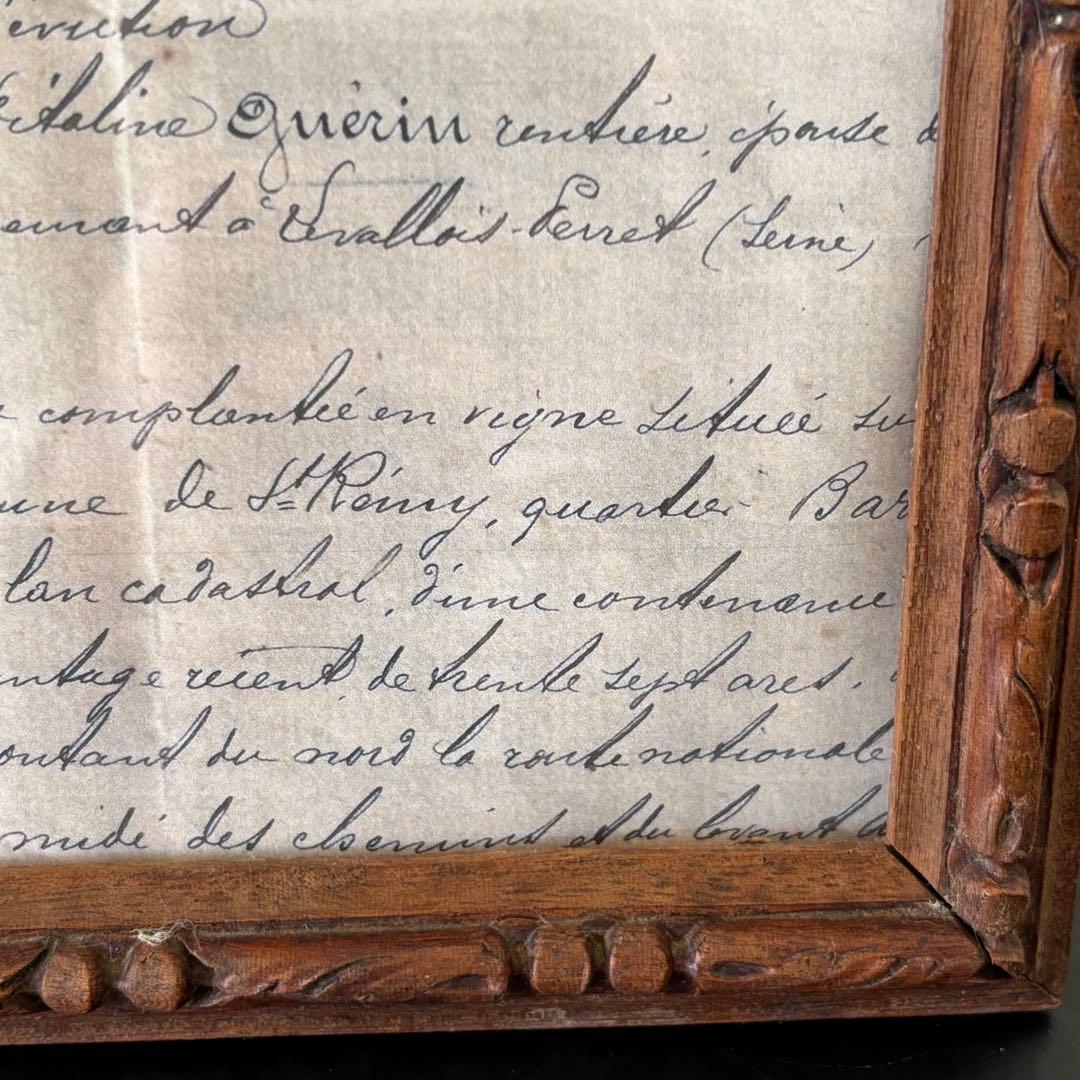 évution
italine Guérin rentière, épouse d
ement à Levallois-Perret (Seine)
complantée en vigne située su
une de St Rémy, quartier Bar
lan cadastral, d'une contenance
ntage récent, de trente sept ares.
ontant du nord la route nationale
midi des chemins et du levant